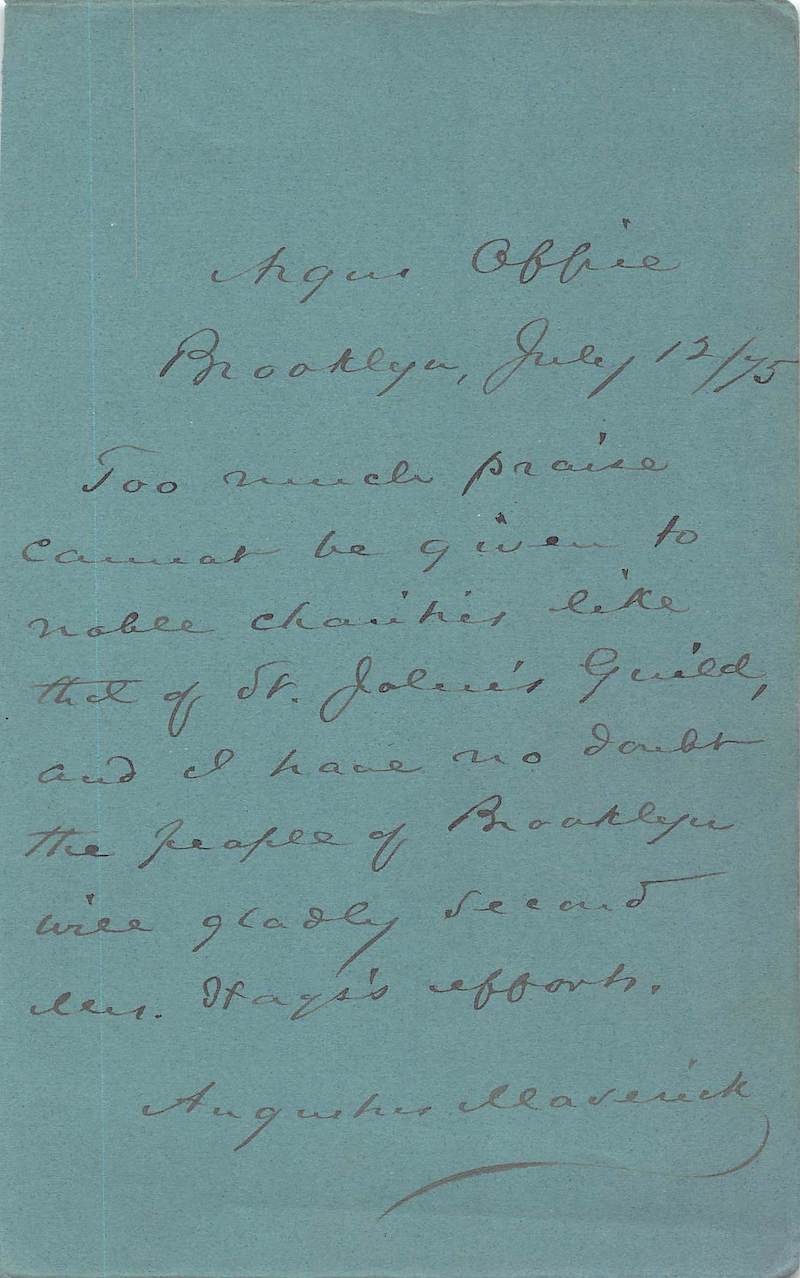 Argus Office
Brooklyn, July 12/75
Too much praise
cannot be given to
noble charities like
that of St. John's Guild,
and I have no doubt
the people of Brooklyn
will gladly second
Mrs. Hays's efforts.
Augustus Maverick